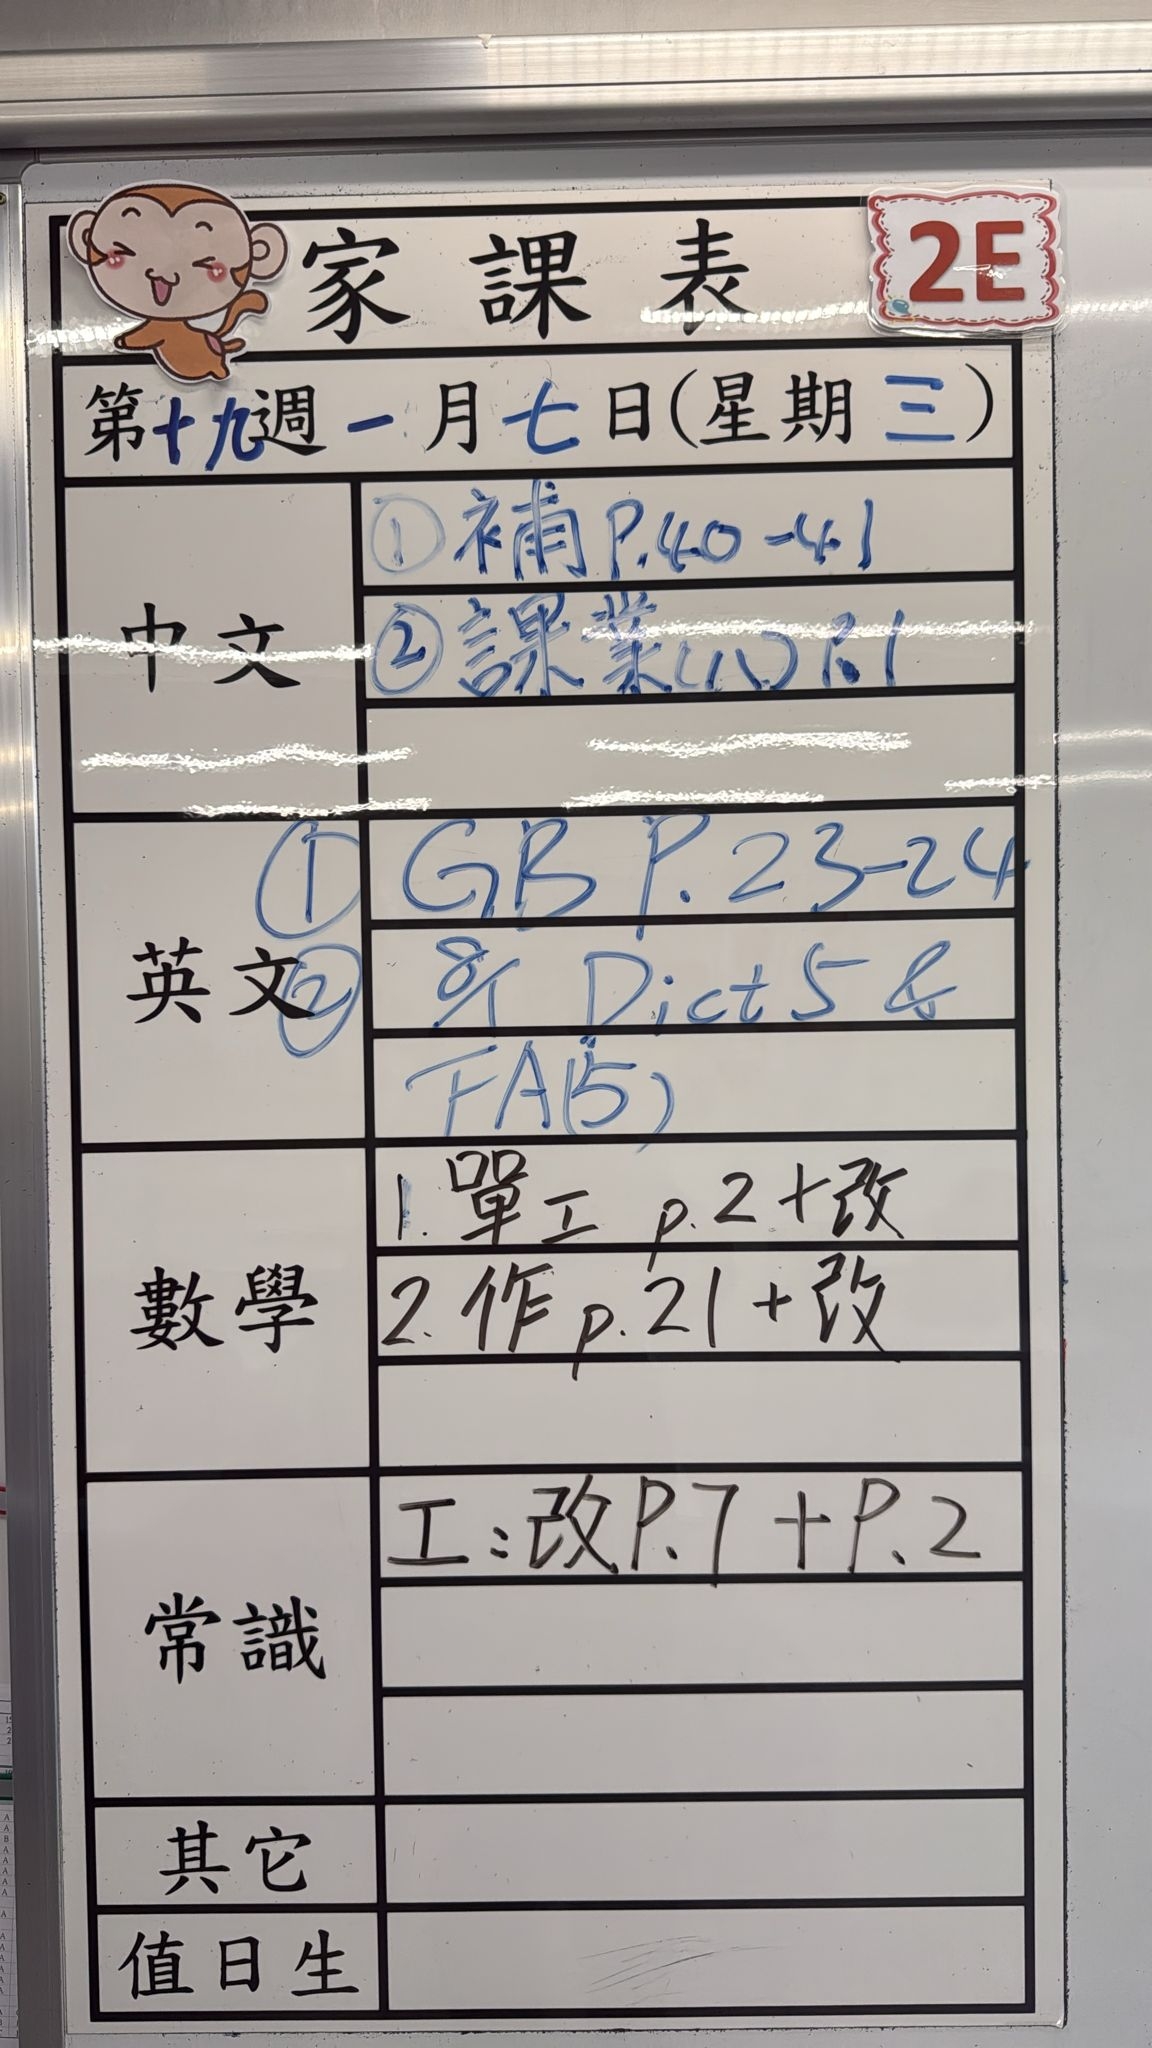 家課表
2E
第十九週一月七日(星期三)
中文
① 補 P.40-41
② 課業(八) P.1
英文
① GB P.23-24
② 8/1 Dict 5 &
FA(5)
數學
1. 單工 p.2+改
2. 作 p.21+改
常識
工:改P.7+P.2
其它
值日生